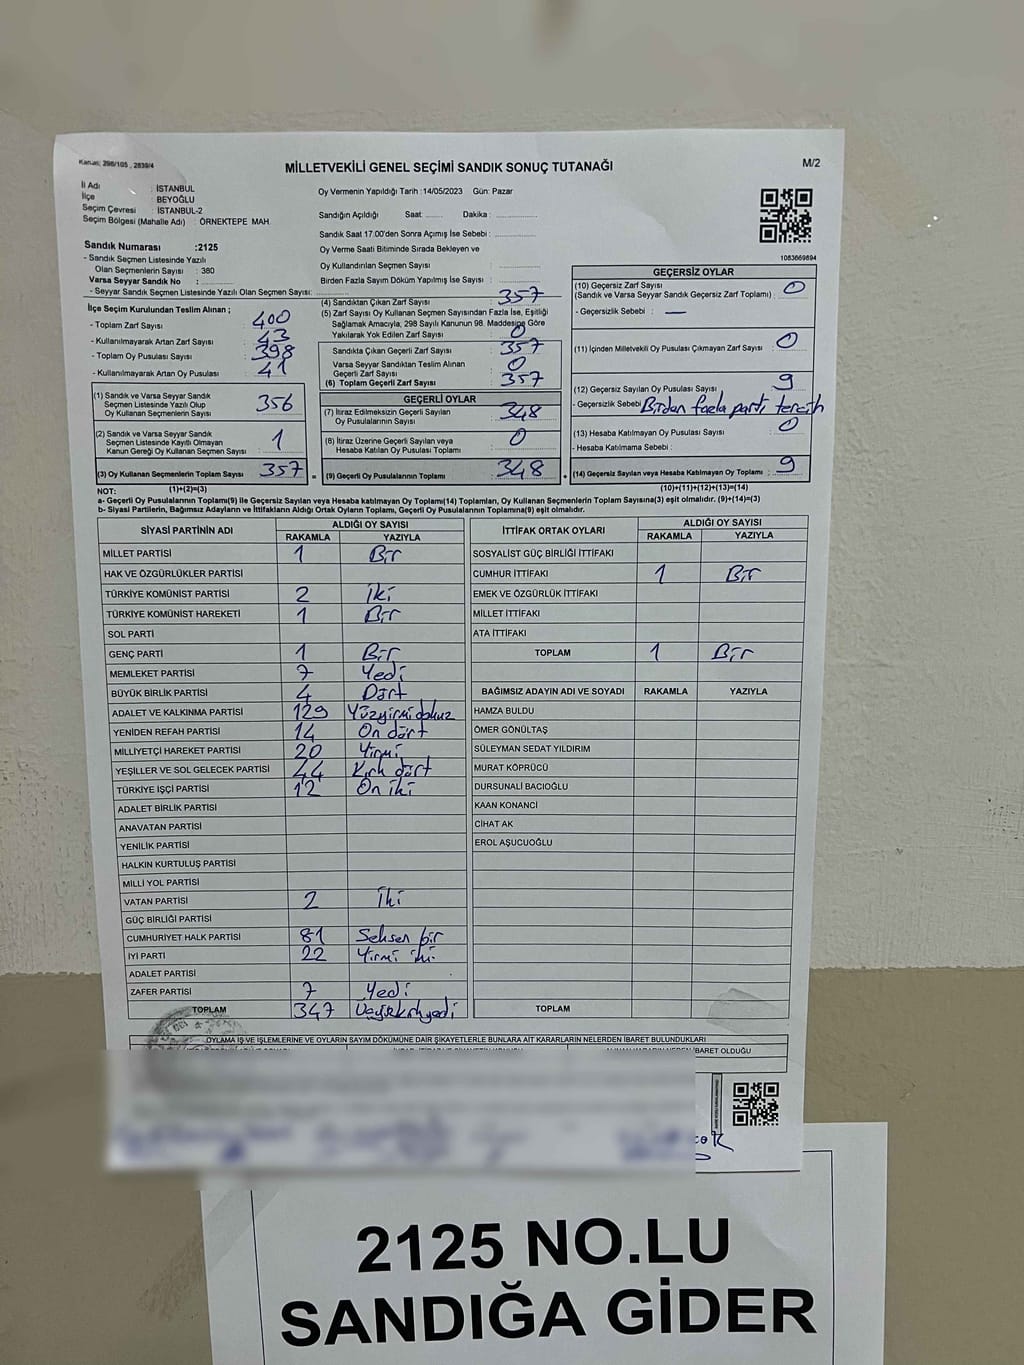 Kanun: 298/105 , 2839/4
MİLLETVEKİLİ GENEL SEÇİMİ SANDIK SONUÇ TUTANAĞI
M/2
İl Adı : İSTANBUL
İlçe : BEYOĞLU
Seçim Çevresi : İSTANBUL-2
Seçim Bölgesi (Mahalle Adı) : ÖRNEKTEPE MAH.
Sandık Numarası :2125
- Sandık Seçmen Listesinde Yazılı
Olan Seçmenlerin Sayısı : 380
Varsa Seyyar Sandık No :
- Seyyar Sandık Seçmen Listesinde Yazılı Olan Seçmen Sayısı:
Oy Vermenin Yapıldığı Tarih : 14/05/2023 Gün: Pazar
Sandığın Açıldığı Saat ....... Dakika : ...............
Sandık Saat 17:00'den Sonra Açımış İse Sebebi : ...............
Oy Verme Saati Bitiminde Sırada Bekleyen ve
Oy Kullandırılan Seçmen Sayısı ...............
Birden Fazla Sayım Döküm Yapılmış İse Sayısı : ...............
1083669894
İlçe Seçim Kurulundan Teslim Alınan ;
- Toplam Zarf Sayısı : 400
- Kullanılmayarak Artan Zarf Sayısı : 43
- Toplam Oy Pusulası Sayısı : 398
- Kullanılmayarak Artan Oy Pusulası : 41
(1) Sandık ve Varsa Seyyar Sandık
Seçmen Listesinde Yazılı Olup
Oy Kullanan Seçmenlerin Sayısı 356
(2) Sandık ve Varsa Seyyar Sandık
Seçmen Listesinde Kayıtlı Olmayan
Kanun Gereği Oy Kullanan Seçmen Sayısı : 1
(3) Oy Kullanan Seçmenlerin Toplam Sayısı : 357
(1)+(2)=(3)
(4) Sandıktan Çıkan Zarf Sayısı : 357
(5) Zarf Sayısı Oy Kullanan Seçmen Sayısından Fazla İse, Eşitliği
Sağlamak Amacıyla, 298 Sayılı Kanunun 98. Maddesine Göre
Yakılarak Yok Edilen Zarf Sayısı : 0
Sandıkta Çıkan Geçerli Zarf Sayısı : 357
Varsa Seyyar Sandıktan Teslim Alınan
Geçerli Zarf Sayısı : 0
(6) Toplam Geçerli Zarf Sayısı : 357
GEÇERLİ OYLAR
(7) İtiraz Edilmeksizin Geçerli Sayılan
Oy Pusulalarının Sayısı : 348
(8) İtiraz Üzerine Geçerli Sayılan veya
Hesaba Katılan Oy Pusulası Toplamı : 0
= (9) Geçerli Oy Pusulalarının Toplamı : 348
GEÇERSİZ OYLAR
(10) Geçersiz Zarf Sayısı
(Sandık ve Varsa Seyyar Sandık Geçersiz Zarf Toplamı) : 0
- Geçersizlik Sebebi : —
(11) İçinden Milletvekili Oy Pusulası Çıkmayan Zarf Sayısı : 0
(12) Geçersiz Sayılan Oy Pusulası Sayısı : 9
- Geçersizlik Sebebi Birden fazla parti tercih
(13) Hesaba Katılmayan Oy Pusulası Sayısı : 0
- Hesaba Katılmama Sebebi :
+ (14) Geçersiz Sayılan veya Hesaba Katılmayan Oy Toplamı : 9
(10)+(11)+(12)+(13)=(14)
NOT:
a- Geçerli Oy Pusulalarının Toplamı(9) ile Geçersiz Sayılan veya Hesaba katılmayan Oy Toplamı(14) Toplamları, Oy Kullanan Seçmenlerin Toplam Sayısına(3) eşit olmalıdır. (9)+(14)=(3)
b- Siyasi Partilerin, Bağımsız Adayların ve İttifakların Aldığı Ortak Oyların Toplamı, Geçerli Oy Pusulalarının Toplamına(9) eşit olmalıdır.
SİYASİ PARTİNİN ADI ALDIĞI OY SAYISI
RAKAMLA YAZIYLA
MİLLET PARTİSİ 1 Bir
HAK VE ÖZGÜRLÜKLER PARTİSİ
TÜRKİYE KOMÜNİST PARTİSİ 2 İki
TÜRKİYE KOMÜNİST HAREKETİ 1 Bir
SOL PARTİ
GENÇ PARTİ 1 Bir
MEMLEKET PARTİSİ 7 Yedi
BÜYÜK BİRLİK PARTİSİ 4 Dört
ADALET VE KALKINMA PARTİSİ 129 Yüzyirmidokuz
YENİDEN REFAH PARTİSİ 14 On dört
MİLLİYETÇİ HAREKET PARTİSİ 20 Yirmi
YEŞİLLER VE SOL GELECEK PARTİSİ 44 Kırk dört
TÜRKİYE İŞÇİ PARTİSİ 12 On iki
ADALET BİRLİK PARTİSİ
ANAVATAN PARTİSİ
YENİLİK PARTİSİ
HALKIN KURTULUŞ PARTİSİ
MİLLİ YOL PARTİSİ
VATAN PARTİSİ 2 İki
GÜÇ BİRLİĞİ PARTİSİ
CUMHURİYET HALK PARTİSİ 81 Seksen bir
İYİ PARTİ 22 Yirmi iki
ADALET PARTİSİ
ZAFER PARTİSİ 7 Yedi
TOPLAM 347 Üçyüzkırkyedi
İTTİFAK ORTAK OYLARI ALDIĞI OY SAYISI
RAKAMLA YAZIYLA
SOSYALİST GÜÇ BİRLİĞİ İTTİFAKI
CUMHUR İTTİFAKI 1 Bir
EMEK VE ÖZGÜRLÜK İTTİFAKI
MİLLET İTTİFAKI
ATA İTTİFAKI
TOPLAM 1 Bir
BAĞIMSIZ ADAYIN ADI VE SOYADI RAKAMLA YAZIYLA
HAMZA BULDU
ÖMER GÖNÜLTAŞ
SÜLEYMAN SEDAT YILDIRIM
MURAT KÖPRÜCÜ
DURSUNALİ BACIOĞLU
KAAN KONANCİ
CİHAT AK
EROL AŞUCUOĞLU
TOPLAM
OYLAMA İŞ VE İŞLEMLERİNE VE OYLARIN SAYIM DÖKÜMÜNE DAİR ŞİKAYETLERLE BUNLARA AİT KARARLARIN NELERDEN İBARET BULUNDUKLARI
İBARET OLDUĞU
2125 NO.LU
SANDIĞA GİDER